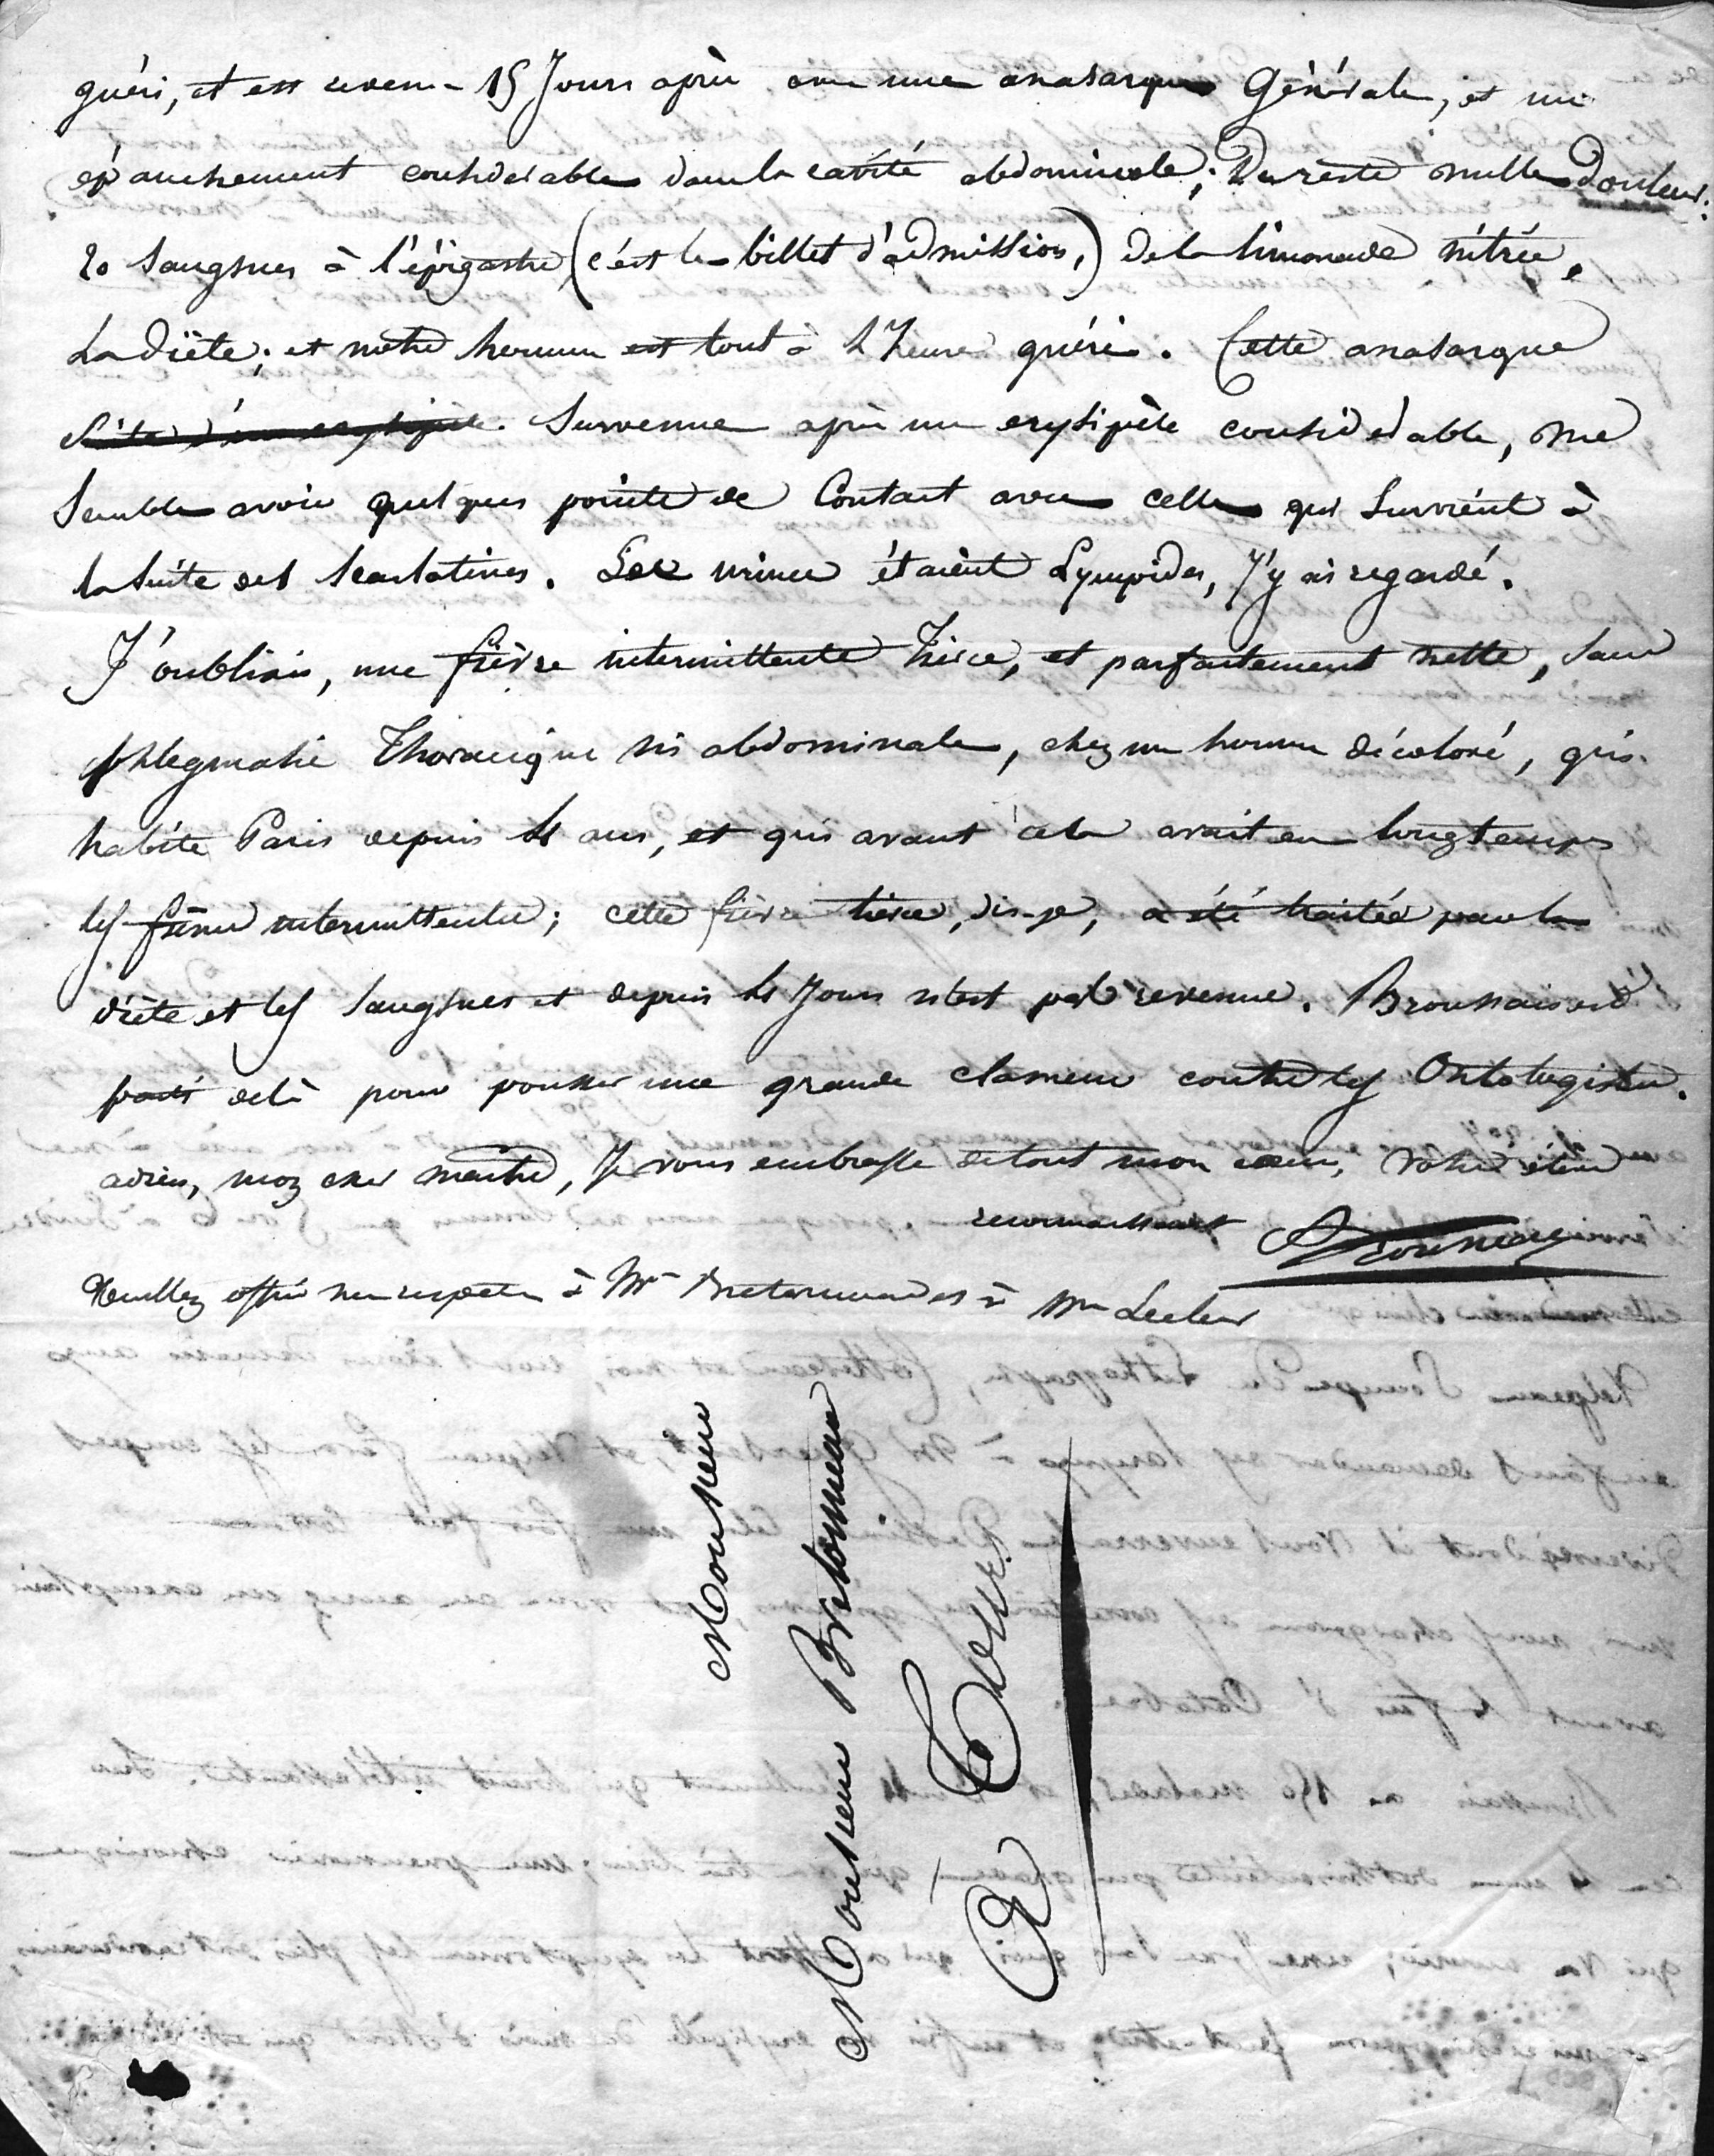 guéri, et est revenu 15 Jours après avec une anasarque Générale, et un
épanchement considerable dans la cavité abdominale; Du reste nulle Douleur.
20 Sangsues à l'épigastre (c'est le billet d'admission,) de la limonade nitrée,
La diète; et notre homme est tout à l'heure guéri. Cette anasarque
suite d'un erysipèle. Survenue après un erysipèle considerable, me
Semble avoir quelques points de Contact avec celle qui Survient à
la Suite des Scarlatines. Les urines étaient Lympides, J'y ai regardé.
J'oubliais, une fièvre intermittente Tierce, et parfaitement nette, Sans
phlegmasie Thoracique ni abdominale, chez un homme décoloré, qui
habite Paris depuis 4 ans, et qui avant cela avait eu longtemps
les fièvres intermittentes; cette fièvre tierce, dis-je, a été traitée par la
diète et les Sangsues et depuis 4 Jours n'est pas revenue. Broussais est
parti delà pour pousser une grande clameur contre les Ontologistes.
adieu, mon cher maitre, Je vous embrasse de tout mon coeur, Votre élève
reconnaissant Trousseau
Veuillez offrir mes respects à Me Bretonneau et à Me Leclerc
Monsieur
Monsieur Bretonneau
à Tours